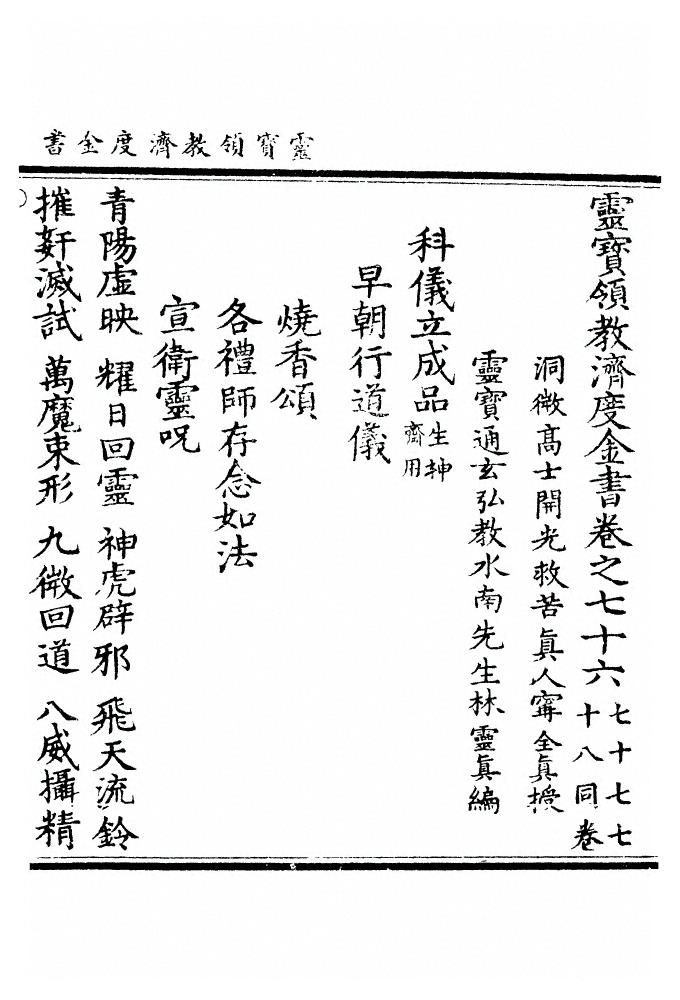 靈寶領教濟度金書
靈寶領教濟度金書卷之七十六 七十七七十八同卷
洞微高士開光救苦眞人甯全眞授
靈寶通玄弘教水南先生林靈眞編
科儀立成品 生神齊用
早朝行道儀
燒香頌
各禮師存念如法
宣衛靈呪
青陽虛映 耀日回靈 神虎辟邪 飛天流鈴
摧奸滅試 萬魔束形 九微回道 八威攝精